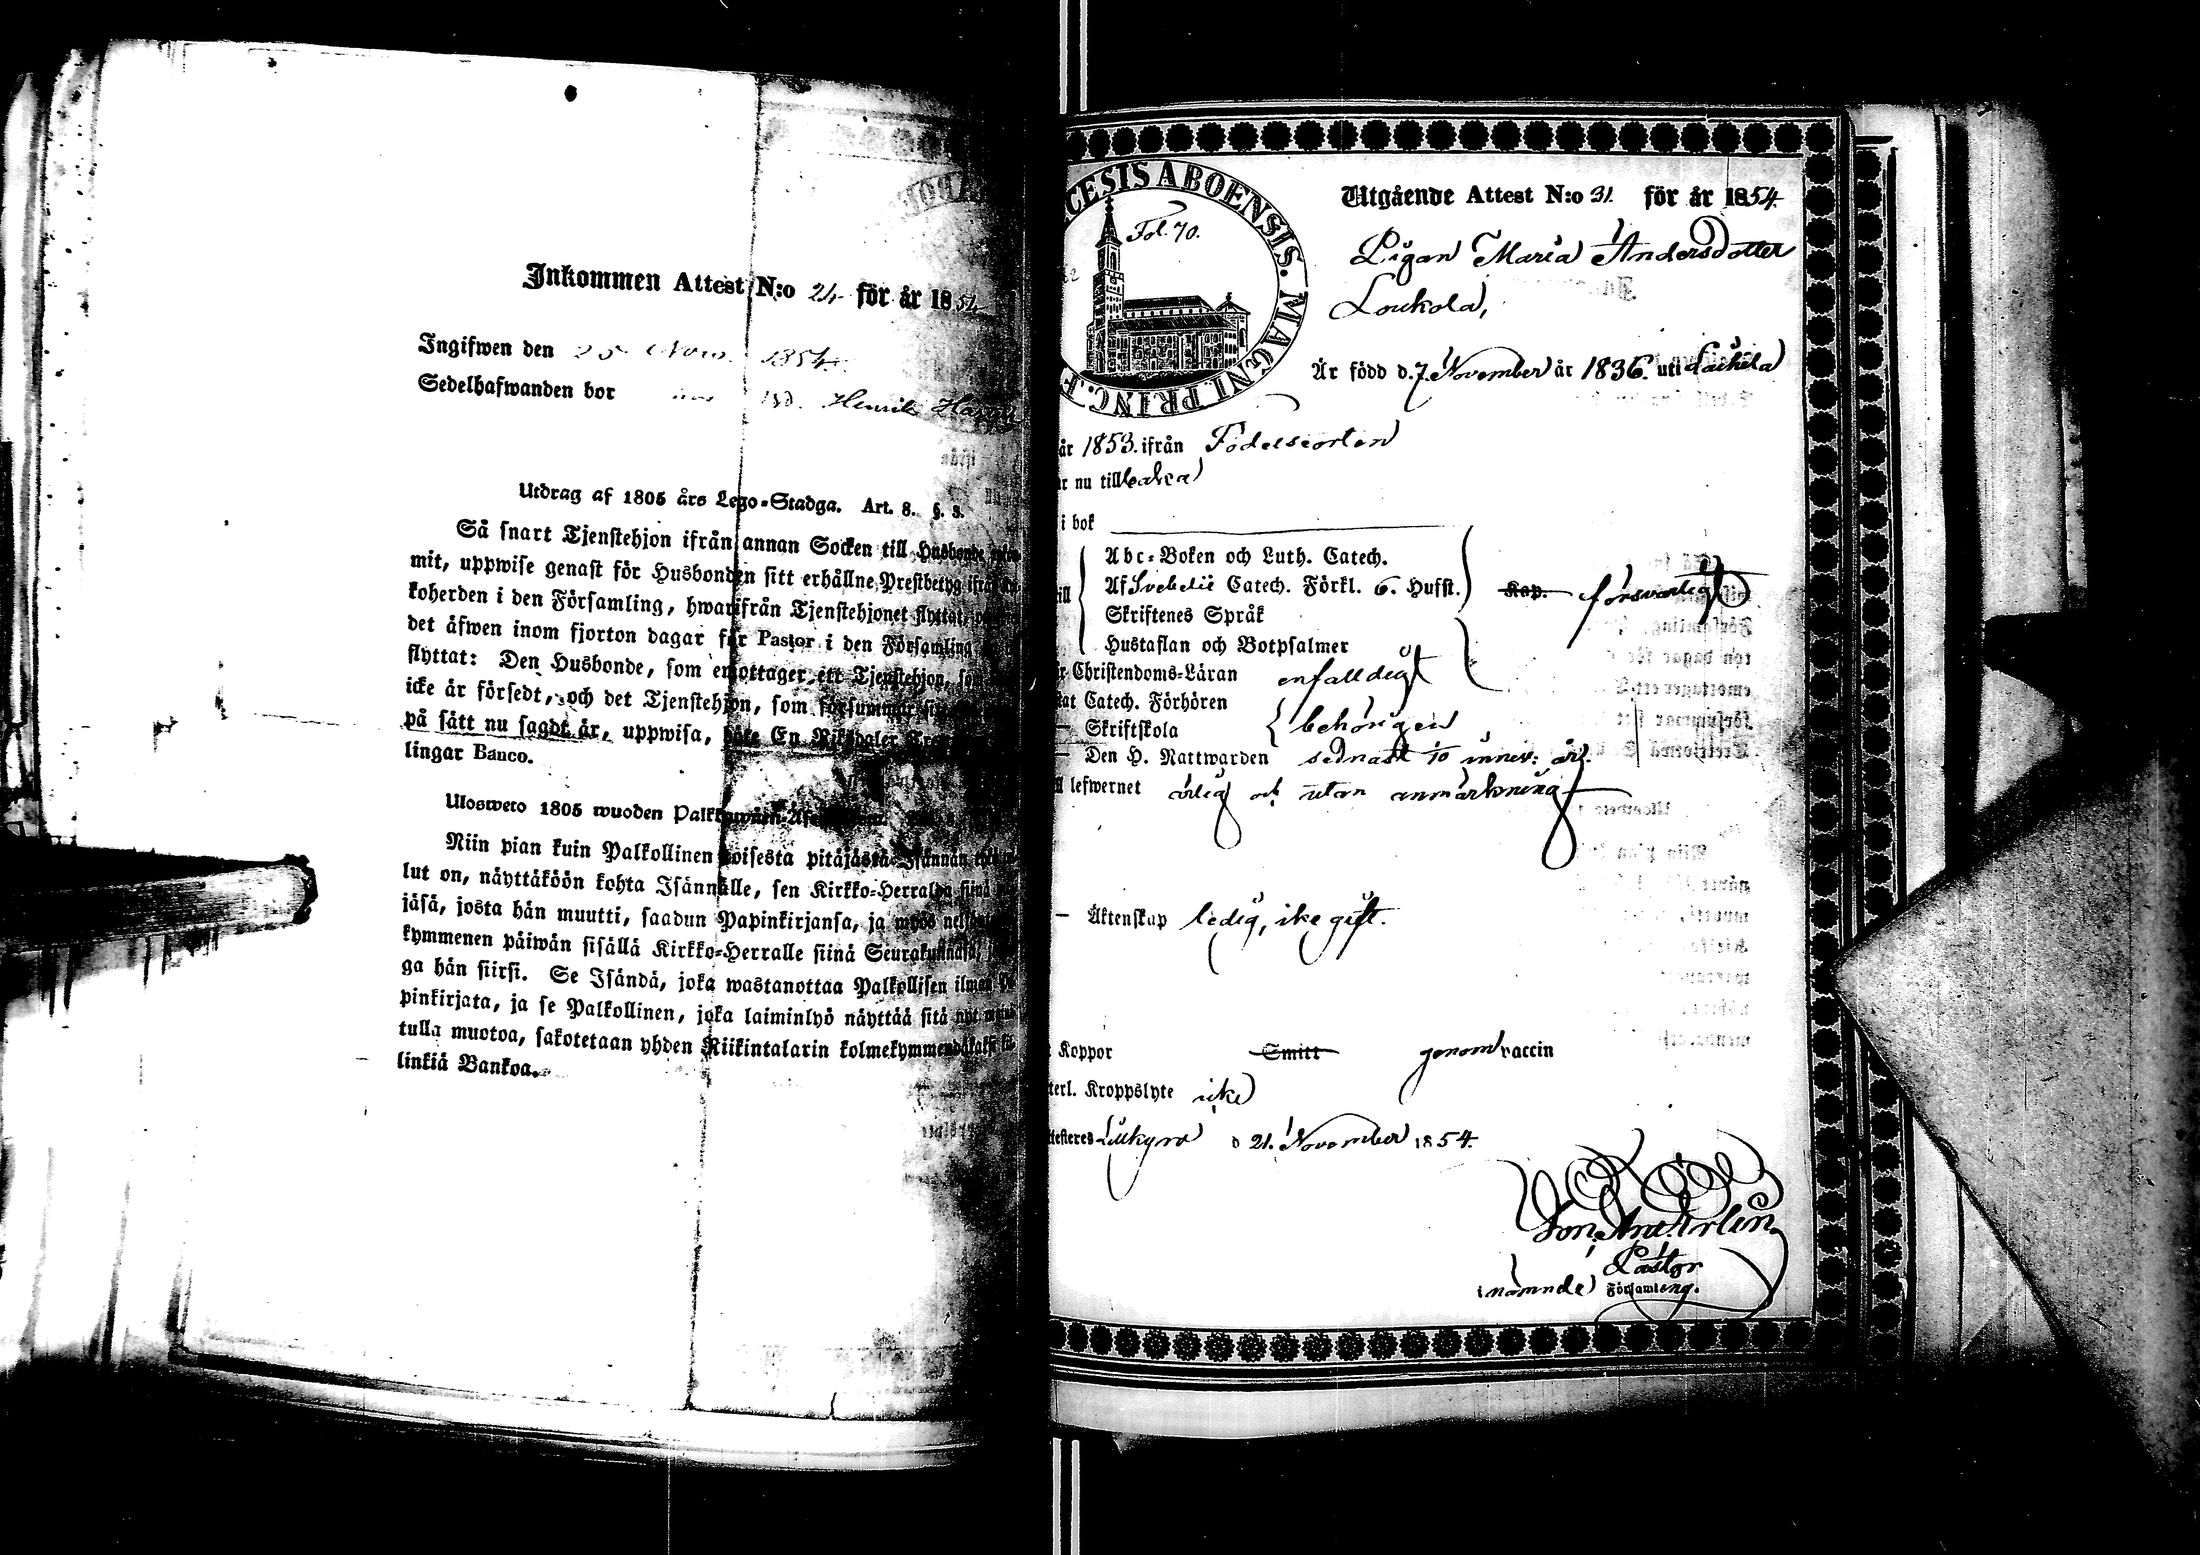 Inkommen Attest N:o 24 för år 1854
Ingifwen den 25 Nov. 1854.
Sedelhafwanden bor Henrik
Utdrag af 1805 års Lego-Stadga. Art. 8. §. 3.
Så snart Tjenstehjon ifrån annan Socken till Husbonde
mit, uppwise genast för Husbonden sitt erhållne Prestbetyg ifrån
koherden i den Församling, hwarifrån Tjenstehjonet flyttat,
det äfwen inom fjorton dagar för Pastor i den Församling
flyttat: Den Husbonde, som emottager ett Tjenstehjon, som
icke är försedt, och det Tjenstehjon, som försummar
på sätt nu sagdt är, uppwisa, böte En Riksdaler
lingar Banco.
Ulosweto 1805 wuoden
Niin pian kuin Palkollinen toisesta pitäjästä Isännän
lut on, näyttäköön kohta Isännälle, sen Kirkko-Herralda siinä
jäsä, josta hän muutti, saadun Papinkirjansa, ja myös
kymmenen päiwän sisällä Kirkko-Herralle siinä Seurakunnasa,
ga hän siirsi. Se Isändä, joka wastanottaa Palkollisen ilman
pinkirjata, ja se Palkollinen, joka laiminlyö näyttää sitä nyt
tulla muotoa, sakotetaan yhden Riikintalarin kolmekymmendäkaksi
linkiä Bankoa.
CESIS ABOENSIS. MAGNI PRINC. F
Fol. 70.
Utgående Attest N:o 31. för år 1854.
Pigan Maria Andersdotter
Loukola,
Är född d. 7. November år 1836. uti
år 1853. ifrån Födelseorten
r nu tillbaka
i bok
Abc-Boken och Luth. Catech.
Af Svebelii Catech. Förkl. 6. Hufst. Kap. försvarligt
Skriftenes Språk
Hustaflan och Botpsalmer
Christendoms-Läran enfalldigt
tat Catech. Förhören
— Skriftskola behörigen
— Den H. Nattwarden sednast innev: år.
lefwernet ärlig och utan anmärkning
— Äktenskap ledig, ike gift.
Koppor Smitt genom vaccin
terl. Kroppslyte ike
testeres d 21. November 1854.
Pastor
i nämnde Församling.